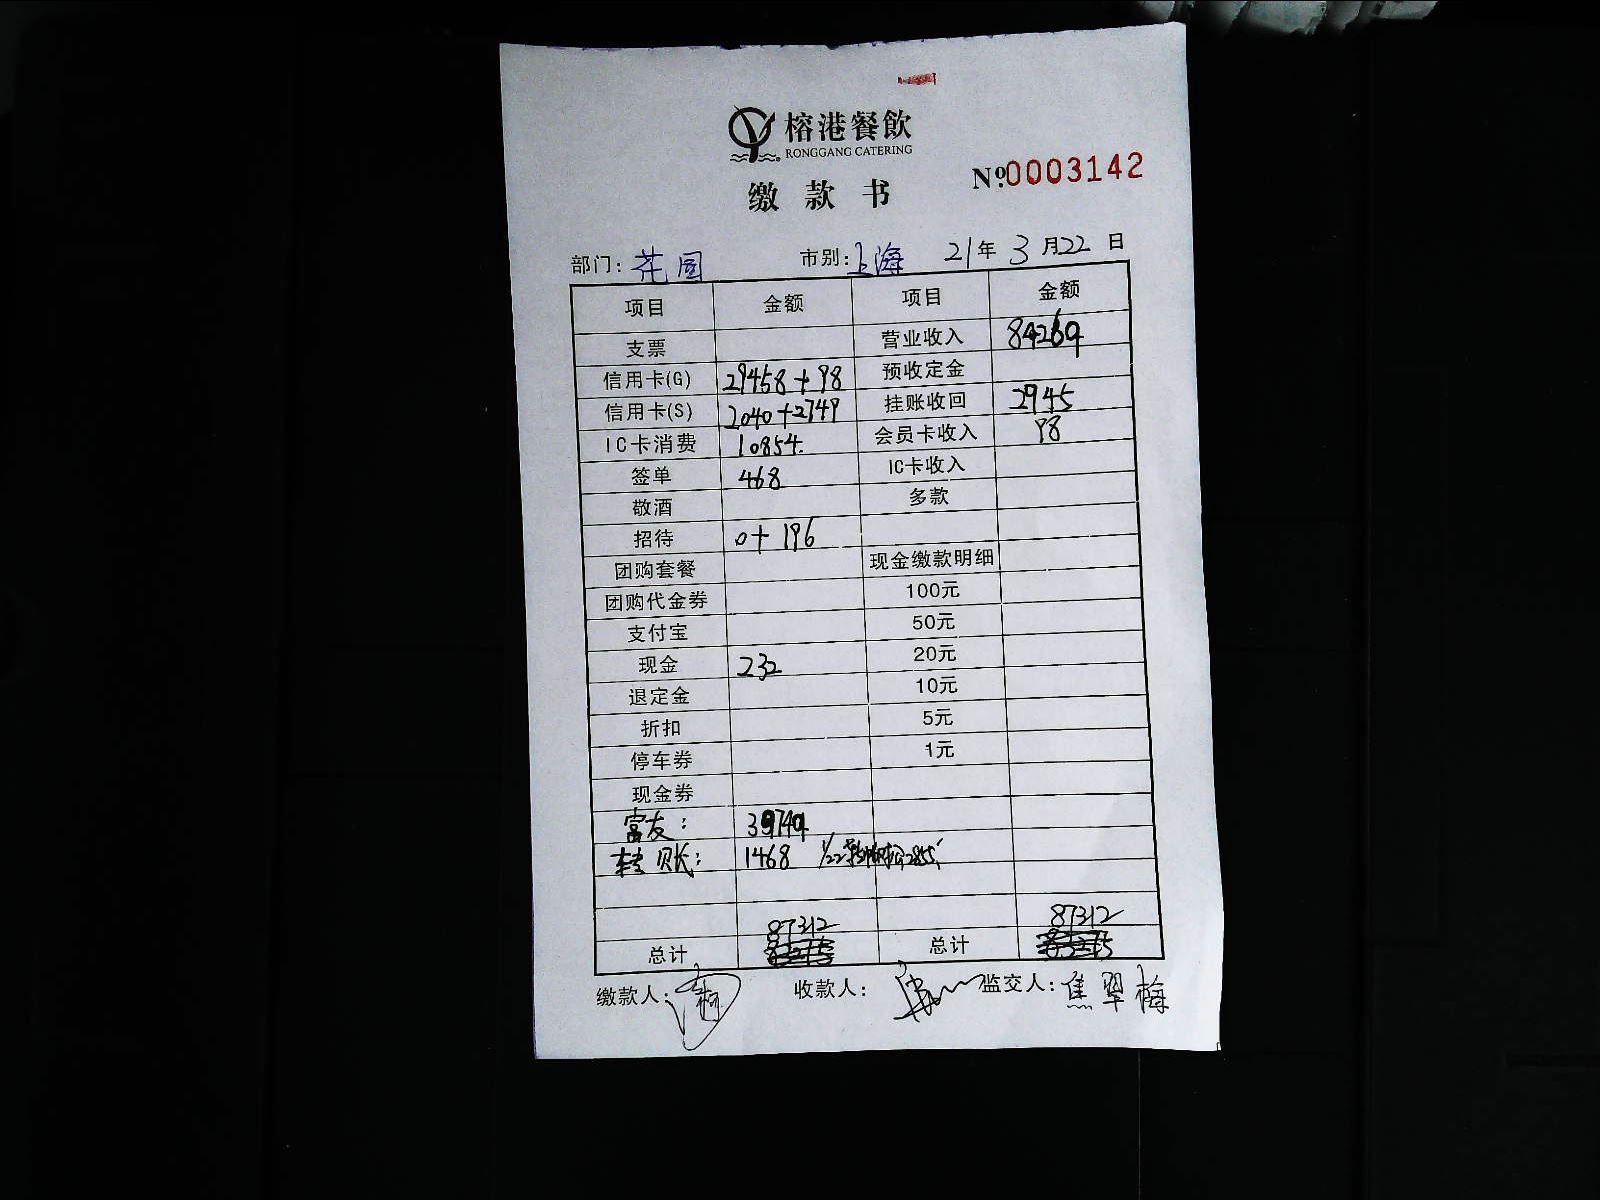 榕港餐飲
RONGGANG CATERING
缴款书
№0003142
部门：花园 市别：上海 21年3月22日
项目 金额 项目 金额
支票 营业收入 84269
信用卡(G) 29458+98 预收定金
信用卡(S) 2040+2749 挂账收回 2945
IC卡消费 10854. 会员卡收入 98
签单 468 IC卡收入
敬酒 多款
招待 0+196
团购套餐 现金缴款明细
团购代金券 100元
支付宝 50元
现金 232 20元
退定金 10元
折扣 5元
停车券 1元
现金券
富友：39749
转账：1468 1/22
87312 87312
总计 总计
缴款人： 收款人： 监交人：焦翠梅